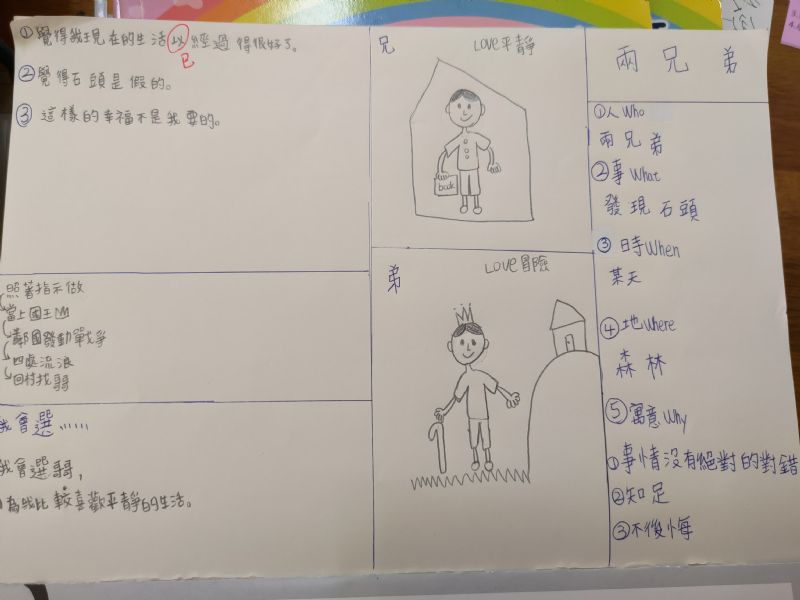 ①覺得我現在的生活以經過得很好了。
已
②覺得石頭是假的。
③這樣的幸福不是我要的。
照著指示做
當上國王
鄰國發動戰爭
四處流浪
回村找
我會選……
我會選
為我比較喜歡平靜的生活。
兄
Love平靜
book
弟
Love冒險
兩兄弟
①人Who
兩兄弟
②事What
發現石頭
③時When
某天
④地Where
森林
⑤寓意Why
①事情沒有絕對的對錯
②知足
③不後悔